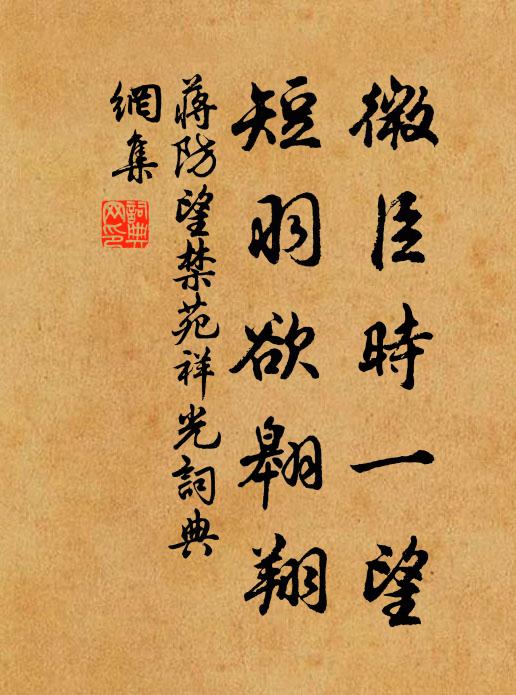 微臣時一望
短羽欲翱翔
蔣防望禁苑祥光詞典
網集
詞典
网印